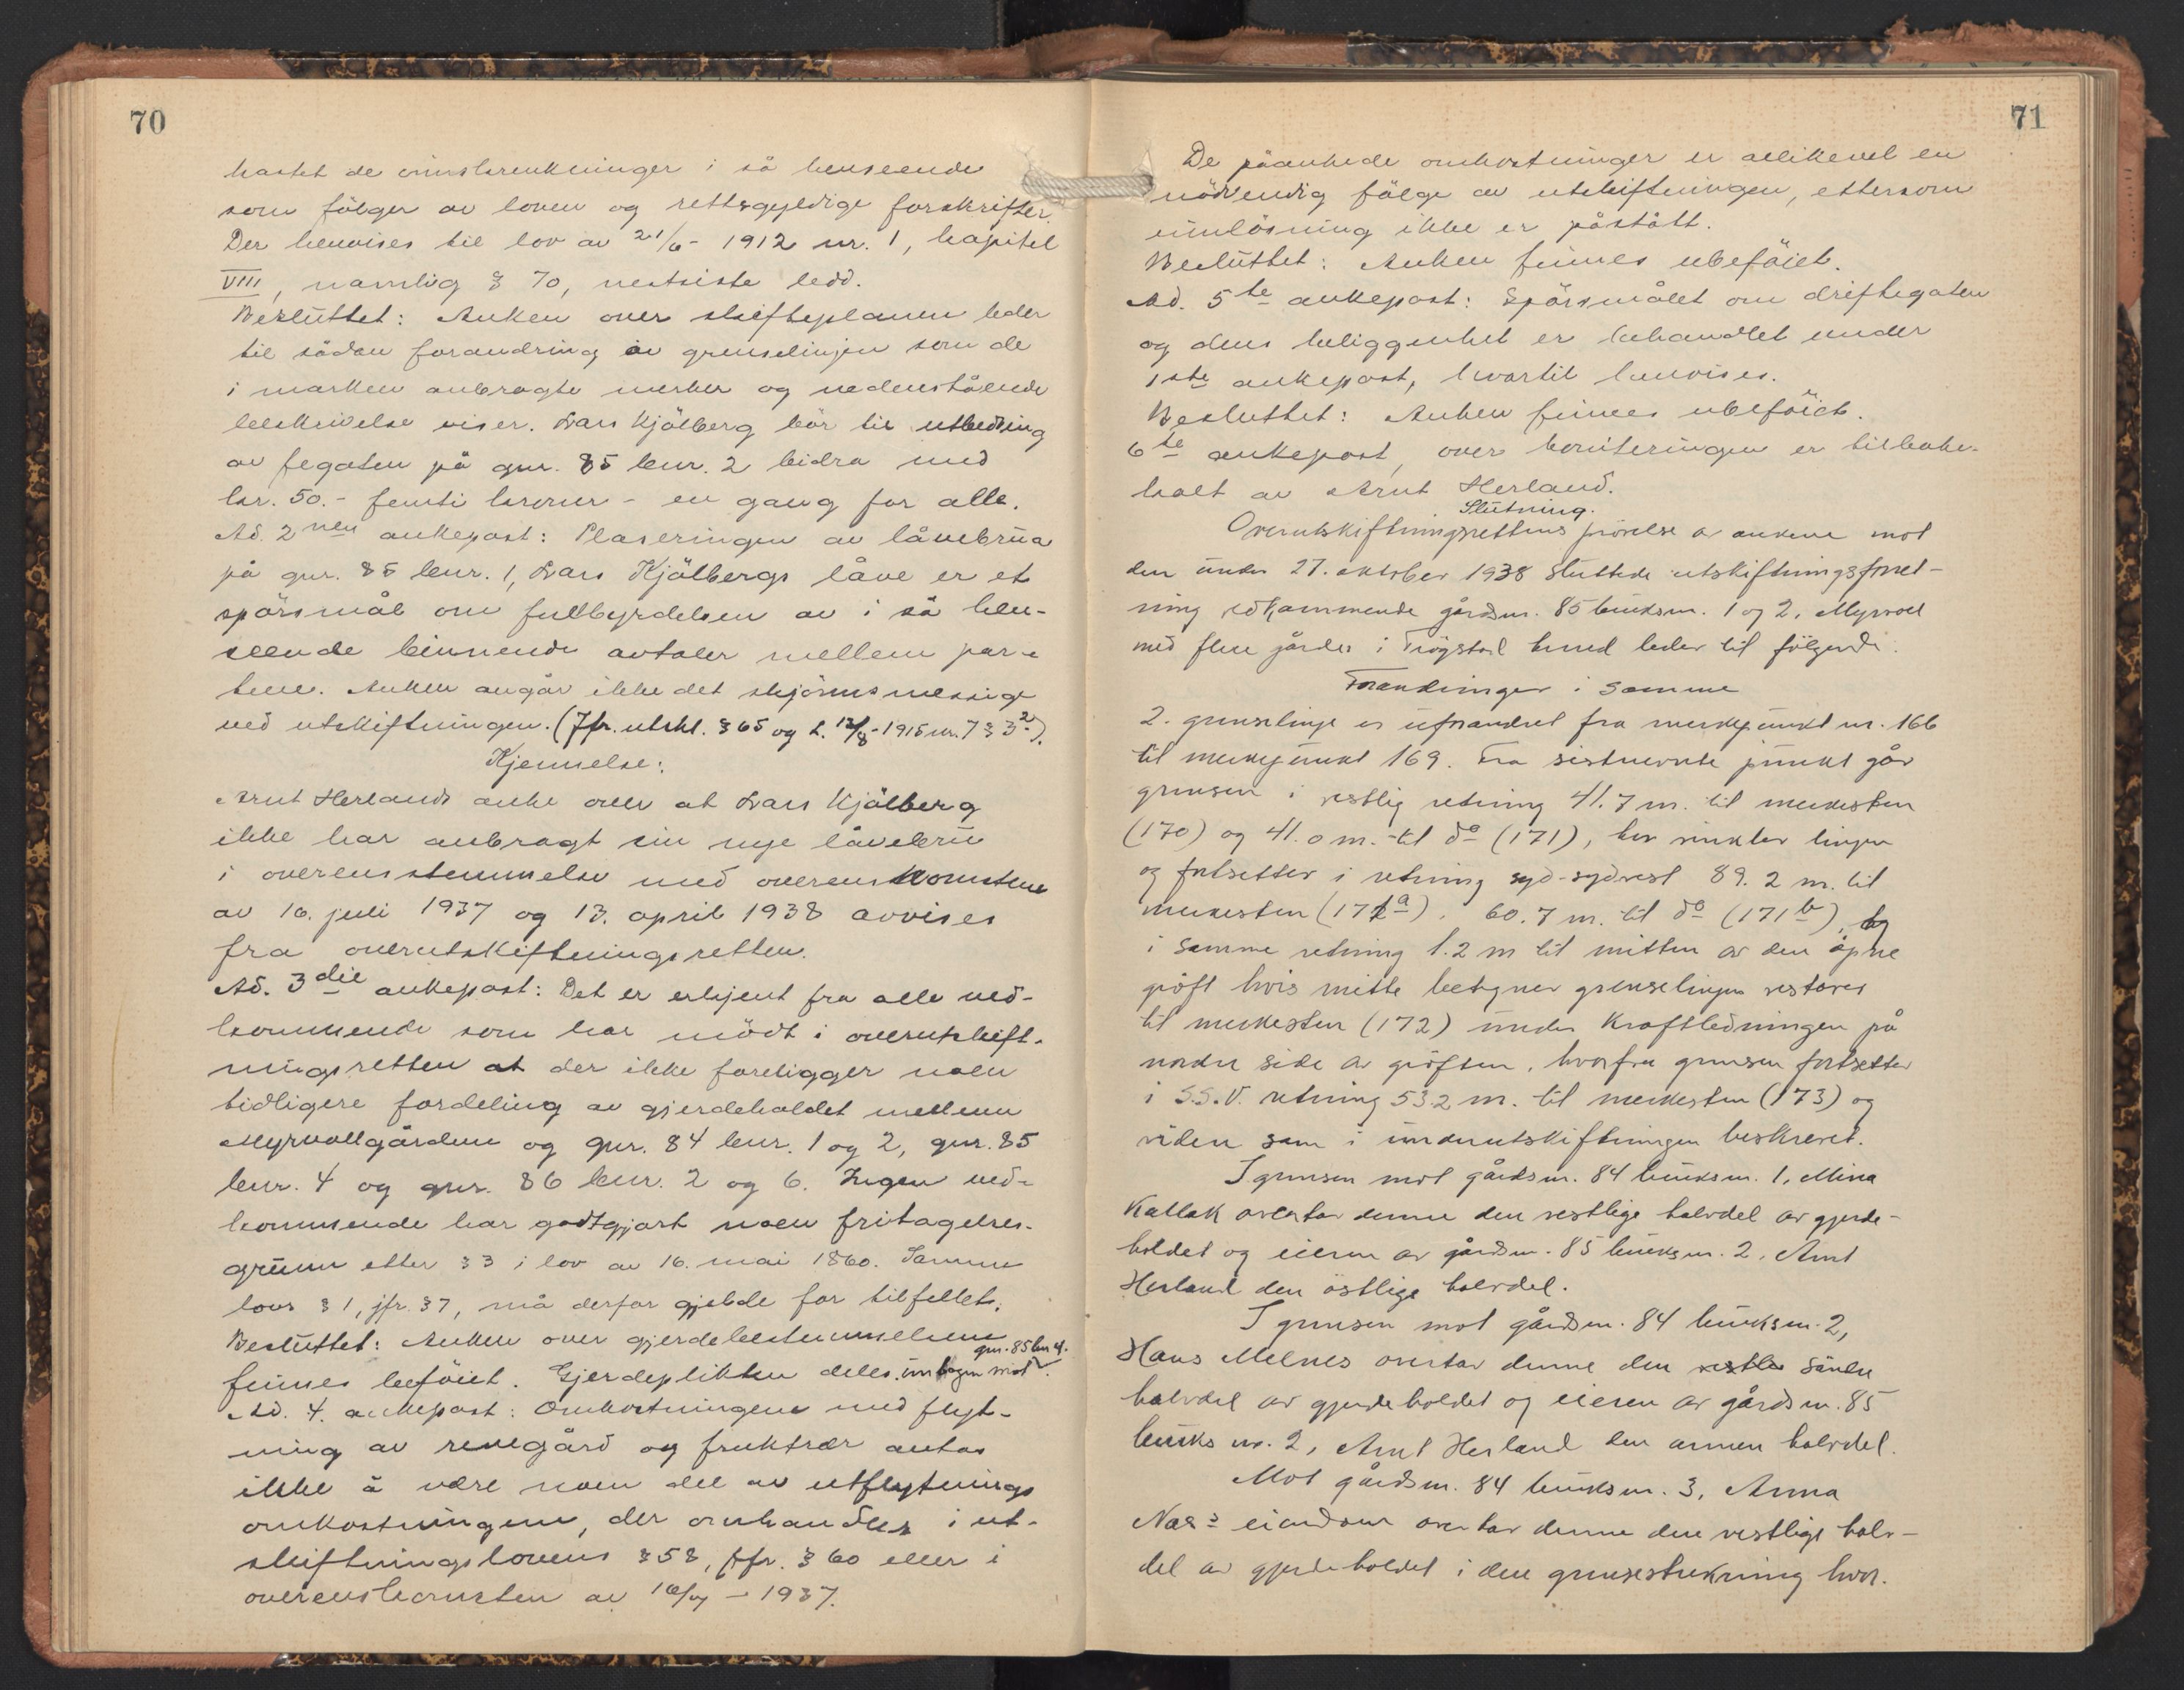 70
hastet de innskrenkninger i så henseende
som følger av loven og rettsgyldige forskrifter.
Der henvises til lov av 21/6 - 1912 nr. 1, kapitel
VIII, namlig § 70, nestsiste ledd.
Besluttet: Anken over skifteplanen leder
til sådan forandring av grenselinjen som de
i marken anbragte merker og nedenstående
beskrivelse viser. Lars Kjölberg bör til utbedring
av fegaten på gnr. 85 bnr. 2 bidra med
kr. 50.- femti kroner - en gang for alle.
Ad. 2nen ankepost: Plaseringen av låvebrua
på gnr. 85 bnr. 1, Lars Kjölbergs låve er et
spörsmål om fullbyrdelsen av i så hen-
seende binnende avtaler mellem par-
tene. Anken angår ikke det skjönnsmessige
ved utskiftningen. (Jfr. utskl. § 65 og L. 13/8-1915 nr. 7 § 3²).
Kjennelse:
Arnt Herlands anke over at Lars Kjölberg
ikke har anbragt sin nye låvebru
i overensstemmelse med overenskomstene
av 16. juli 1937 og 13. april 1938 avvises
fra overutskiftningsretten.
Ad. 3die ankepost: Det er erkjent fra alle ved-
kommende som har mödt i overutskift-
ningsretten at der ikke foreligger noen
tidligere fordeling av gjerdeholdet mellem
Myrvollgårdene og gnr. 84 bnr. 1 og 2, gnr. 85
bnr. 4 og gnr. 86 bnr. 2 og 6. Ingen ved-
kommende har godtgjort noen fritagelses-
grunn etter § 3 i lov av 16. mai 1860. Samme
lovs § 1, jfr. § 7, må derfor gjelde for tilfellet.
Besluttet: Anken over gjerdebestemmelsene
gnr. 85 bnr 4.
finnes beföiet. Gjerdeplikten deles. inntagen mot
Ad. 4. ankepost: Omkostningene med flyt-
ning av revegård og frukttrær antas
ikke å være noen del av utflytnings
omkostningene, der omhandles i ut-
skiftningslovens § 58, jfr. § 60 eller i
overenskomsten av 16/7 - 1937.
71
De påankede omkostninger er allikevel en
nödvendig fölge av utskiftningen, ettersom
innlösning ikke er påstått.
Besluttet: Anken finnes ubeföiet.
Ad. 5te ankepost: Spörsmålet om driftegaten
og dens beliggenhet er behandlet under
1ste ankepost, hvortil henvises.
Besluttet: Anken finnes ubeföiet.
6te ankepost, over boniteringen er tilbake-
kalt av Arnt Herland.
Slutning.
Overutskiftningsrettens prövelse av ankene mot
den under 27. oktober 1938 sluttede utskiftningsforret-
ning vedkommende gårdsnr. 85 bruksnr. 1 og 2, Myrvoll
med flere gårder i Trögstad herred leder til fölgende
Forandringer i samme
2. grenselinje er uforandret fra merkepunkt nr. 166
til merkepunkt 169. Fra sistnevnte punkt går
grensen i vestlig retning 41.7 m. til merkesten
(170) og 41.0 m. til do (171), her vinkler linjen
og fortsetter i retning syd-sydvest 89.2 m. til
merkesten (171a), 60.7 m. til do (171b), og
i samme retning 1.2 m til mitten av den åpne
gröft hvis mitte betegner grenselinjen vestover
til merkesten (172) under kraftledningen på
nordre side av gröften, hvorfra grensen fortsetter
i S.S.V. retning 53.2 m. til merkesten (173) og
viden som i underutskiftningen beskrevet.
I grensen mot gårdsnr. 84 bruksnr. 1, Mina
Kallak overtar denne den vestlige halvdel av gjerde-
holdet og eieren av gårdsnr. 85 bruksnr. 2, Arnt
Herland den östlige halvdel.
I grensen mot gårdsnr. 84 bruksnr. 2,
Hans Melnes overtar denne den vestlig söndre
halvdel av gjerdeholdet og eieren av gårdsnr. 85
bruks nr. 2, Arnt Herland den annen halvdel.
Mot gårdsnr. 84 bruksnr. 3, Anna
Næs's eiendom overtar denne den vestlige halv-
del av gjerdeholdet i den grensestrekning hvor.